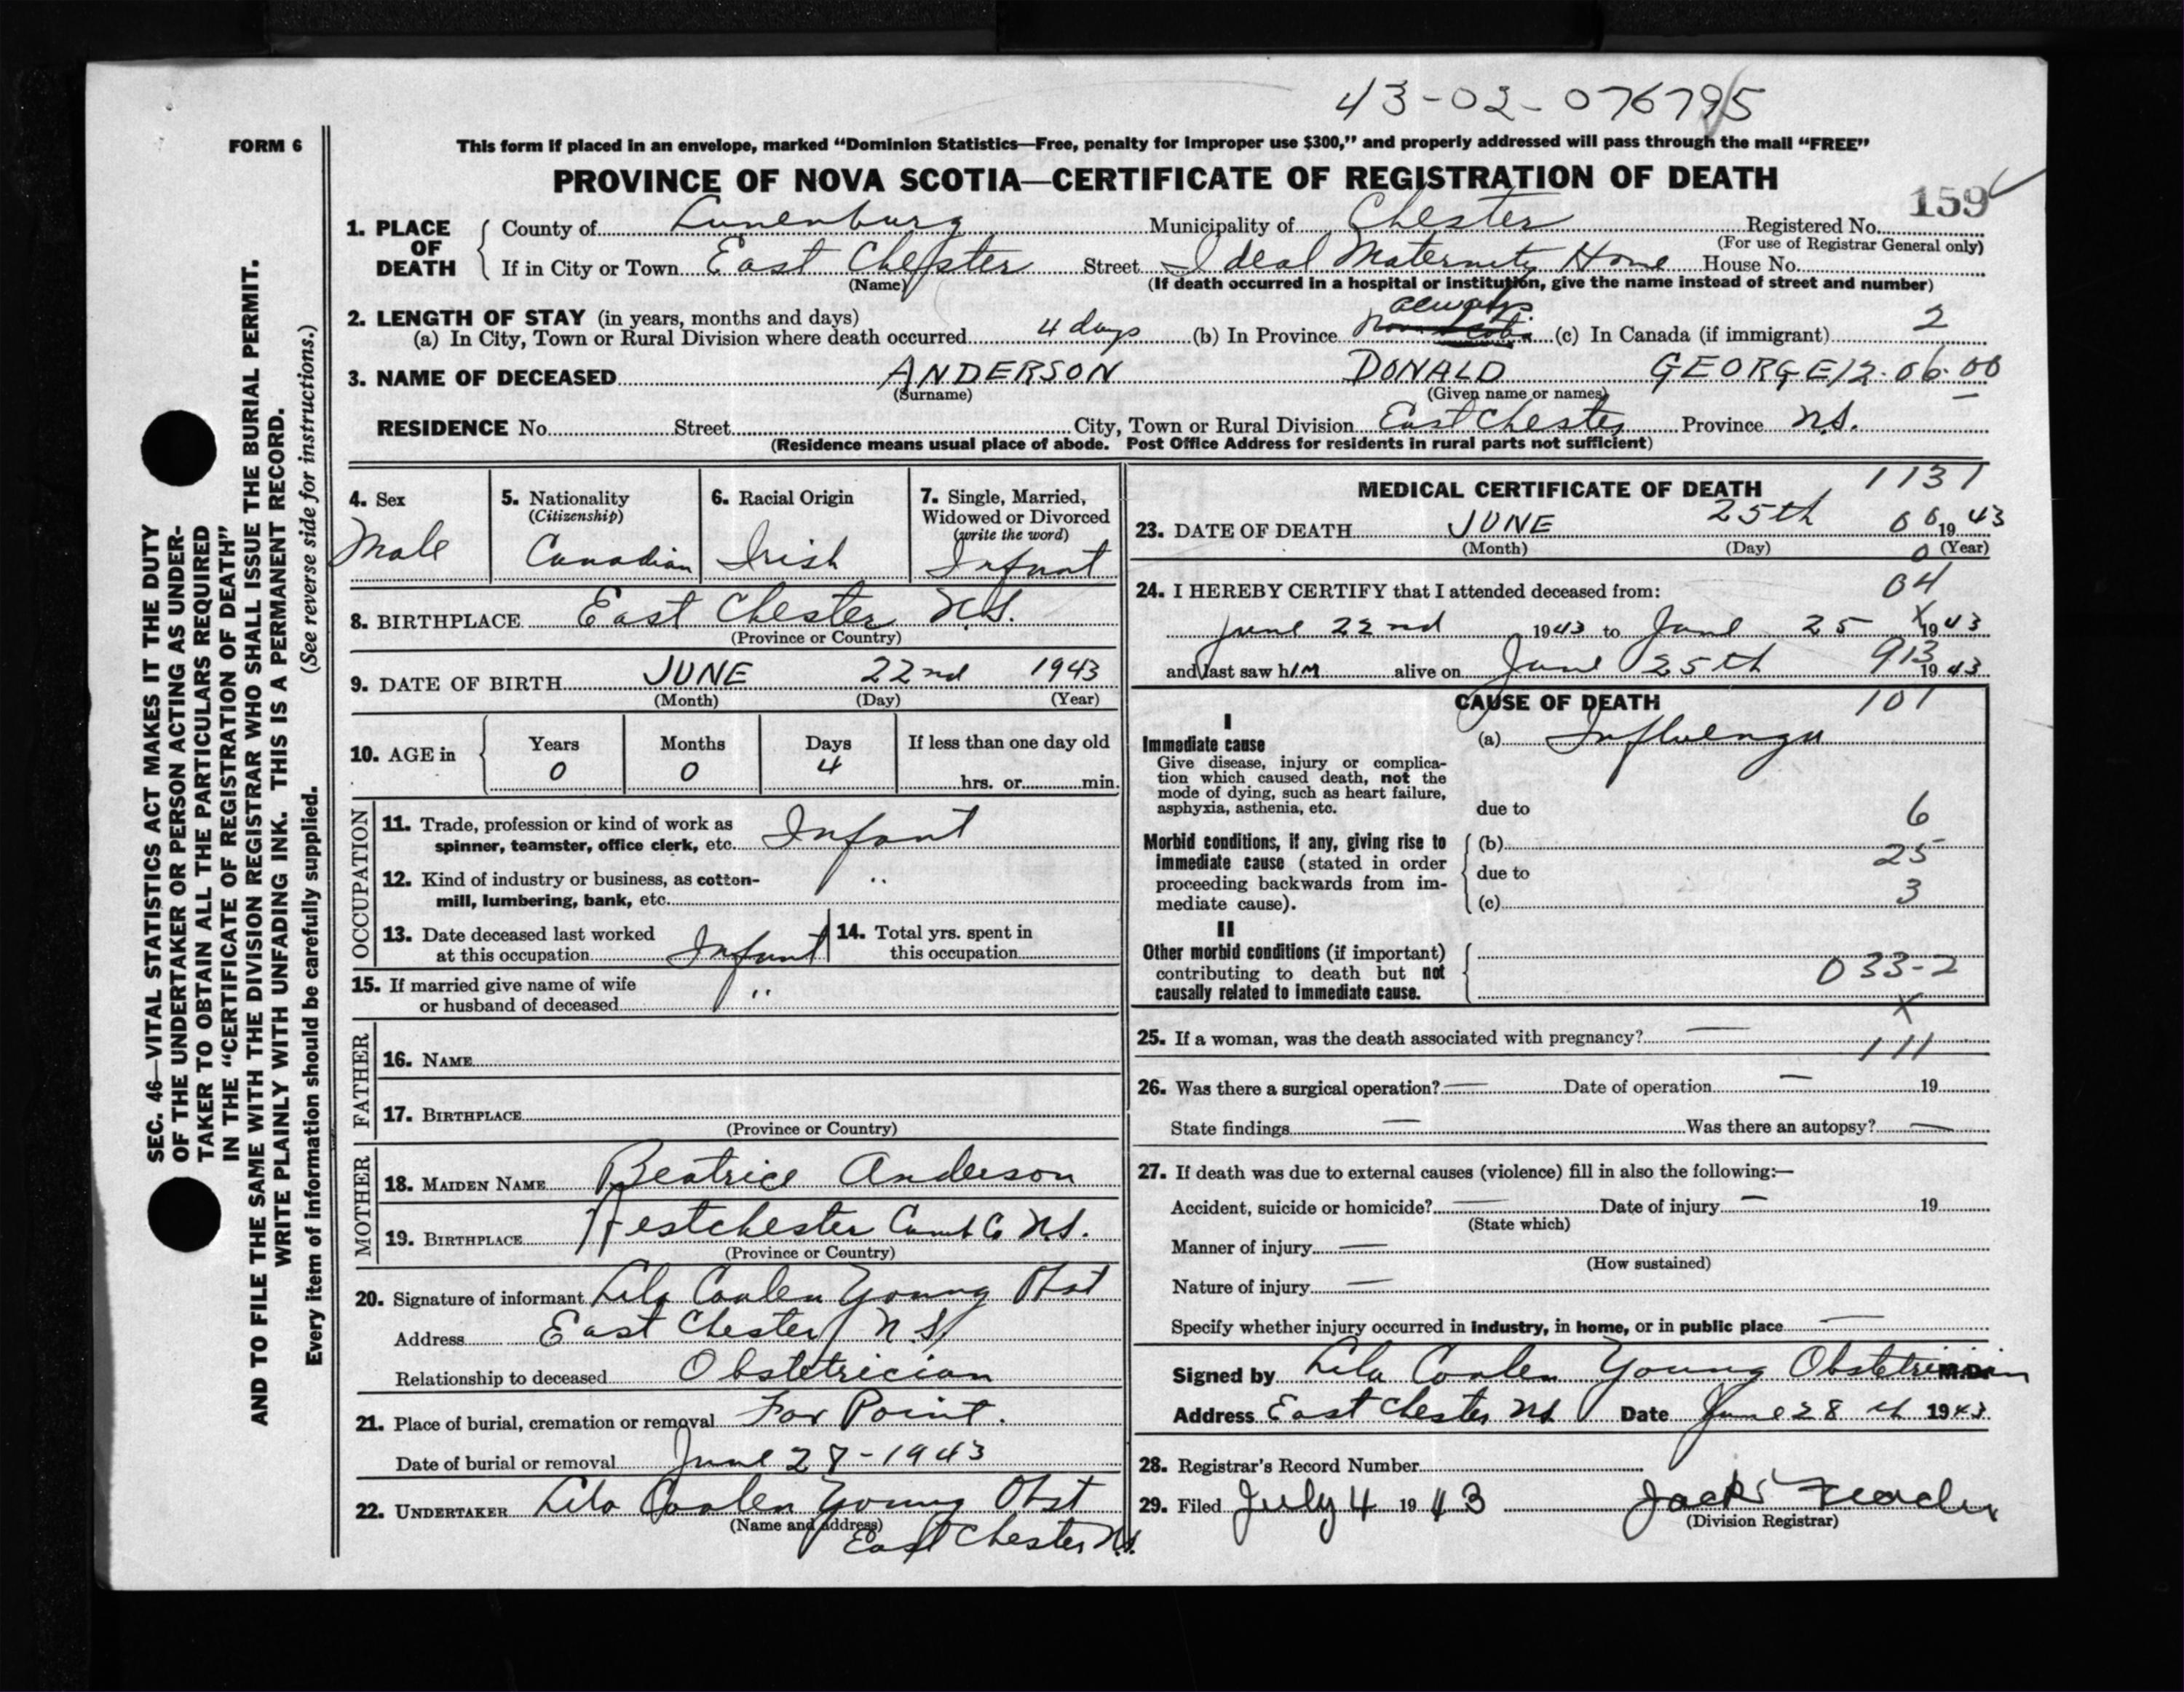 43-02-076795
FORM 6
This form if placed in an envelope, marked “Dominion Statistics—Free, penalty for improper use $300,” and properly addressed will pass through the mail “FREE”
PROVINCE OF NOVA SCOTIA—CERTIFICATE OF REGISTRATION OF DEATH
159
1. PLACE OF DEATH { County of Lunenburg Municipality of Chester Registered No.
(For use of Registrar General only)
If in City or Town East Chester Street Ideal Maternity Home House No.
(Name) (If death occurred in a hospital or institution, give the name instead of street and number)
2. LENGTH OF STAY (in years, months and days)
(a) In City, Town or Rural Division where death occurred 4 days (b) In Province always (c) In Canada (if immigrant) 2
3. NAME OF DECEASED ANDERSON DONALD GEORGE 12.06.00
(Surname) (Given name or names)
RESIDENCE No. Street City, Town or Rural Division East Chester Province N.S.
(Residence means usual place of abode. Post Office Address for residents in rural parts not sufficient)
4. Sex
Male
5. Nationality
(Citizenship)
Canadian
6. Racial Origin
Irish
7. Single, Married,
Widowed or Divorced
(write the word)
Infant
8. BIRTHPLACE East Chester N.S.
(Province or Country)
9. DATE OF BIRTH JUNE 22nd 1943
(Month) (Day) (Year)
10. AGE in { Years Months Days If less than one day old
0 0 4
hrs. or min.
OCCUPATION
11. Trade, profession or kind of work as
spinner, teamster, office clerk, etc. Infant
12. Kind of industry or business, as cotton-
mill, lumbering, bank, etc. "
13. Date deceased last worked
at this occupation Infant
14. Total yrs. spent in
this occupation
15. If married give name of wife
or husband of deceased "
FATHER
16. NAME
17. BIRTHPLACE
(Province or Country)
MOTHER
18. MAIDEN NAME Beatrice Anderson
19. BIRTHPLACE Westchester Cumb Co N.S.
(Province or Country)
20. Signature of informant Lila Coolen Young Obst
Address East Chester N S
Relationship to deceased Obstetrician
21. Place of burial, cremation or removal Fox Point.
Date of burial or removal June 28-1943
22. UNDERTAKER Lila Coolen Young Obst
(Name and address)
East Chester N.S.
MEDICAL CERTIFICATE OF DEATH 1131
23. DATE OF DEATH JUNE 25th 06 1943
(Month) (Day) 0 (Year)
24. I HEREBY CERTIFY that I attended deceased from: 04
June 22nd 1943 to June 25 X 1943
and last saw hIM alive on June 25th 913 1943
CAUSE OF DEATH 101
I
Immediate cause
Give disease, injury or complica-
tion which caused death, not the
mode of dying, such as heart failure,
asphyxia, asthenia, etc.
(a) Influenza
due to
6
Morbid conditions, if any, giving rise to
immediate cause (stated in order
proceeding backwards from im-
mediate cause).
(b)
25
due to
3
(c)
II
Other morbid conditions (if important)
contributing to death but not
causally related to immediate cause.
033-2
X
25. If a woman, was the death associated with pregnancy? —
111
26. Was there a surgical operation? — Date of operation — 19
State findings — Was there an autopsy? —
27. If death was due to external causes (violence) fill in also the following:—
Accident, suicide or homicide? — Date of injury — 19
(State which)
Manner of injury —
(How sustained)
Nature of injury —
Specify whether injury occurred in industry, in home, or in public place —
Signed by Lila Coolen Young Obstetrician M.D.
Address East Chester N.S. Date June 28th 1943
28. Registrar's Record Number
29. Filed July 4 1943 Jack
(Division Registrar)
SEC. 46—VITAL STATISTICS ACT MAKES IT THE DUTY
OF THE UNDERTAKER OR PERSON ACTING AS UNDER-
TAKER TO OBTAIN ALL THE PARTICULARS REQUIRED
IN THE “CERTIFICATE OF REGISTRATION OF DEATH”
AND TO FILE THE SAME WITH THE DIVISION REGISTRAR WHO SHALL ISSUE THE BURIAL PERMIT.
WRITE PLAINLY WITH UNFADING INK. THIS IS A PERMANENT RECORD.
Every item of information should be carefully supplied. (See reverse side for instructions.)